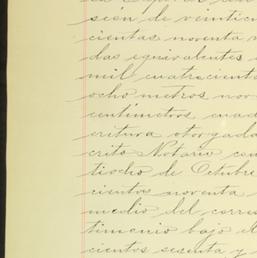 sión de veinticu
cientas noventa
das equivalentes
mil cuatrocient
ocho metros nov
centímetros cuad
critura otorgada
crito Notario con
tiocho de Octubre
cientos noventa
medio del corres
timonio bajo el
cientos sesenta y